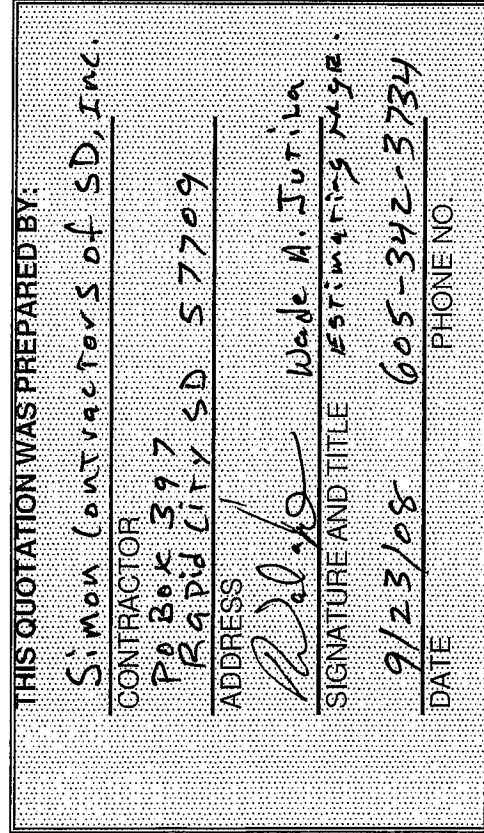 THIS QUOTATION WAS PREPARED BY:
Simon Contractors of SD, Inc.
CONTRACTOR
PO Box 397
Rapid City SD 57709
ADDRESS
Wade A. Jutila
Estimating Mgr.
SIGNATURE AND TITLE
9/23/08 605-342-3734
DATE PHONE NO.